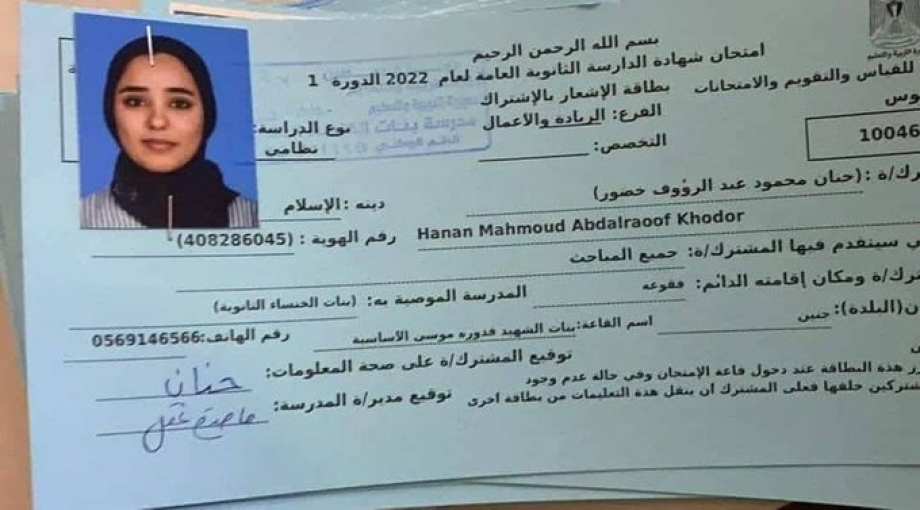 بسم الله الرحمن الرحيم
امتحان شهادة الدارسة الثانوية العامة لعام 2022 الدورة 1
للقياس والتقويم والامتحانات
بطاقة الإشعار بالإشتراك
وس
الفرع: الريادة والأعمال
نوع الدراسة:
نظامي
التخصص:
10046
رك/ة :(حنان محمود عبد الرؤوف خضور)
دينه :الإسلام
Hanan Mahmoud Abdalraoof Khodor
رقم الهوية : (408286045)
ي سيتقدم فيها المشترك/ة: جميع المباحث
ترك/ة ومكان إقامته الدائم: فقوعه
المدرسة الموصية به: (بنات الخنساء الثانوية)
ن(البلدة): جنين
اسم القاعة:بنات الشهيد قدوره موسى الأساسية
رقم الهاتف:0569146566
توقيع المشترك/ة على صحة المعلومات:
حنان
رز هذه البطاقة عند دخول قاعة الإمتحان وفي حالة عدم وجود
توقيع مدير/ة المدرسة:
شتركين خلفها فعلى المشترك ان ينقل هذة التعليمات من بطاقة اخرى